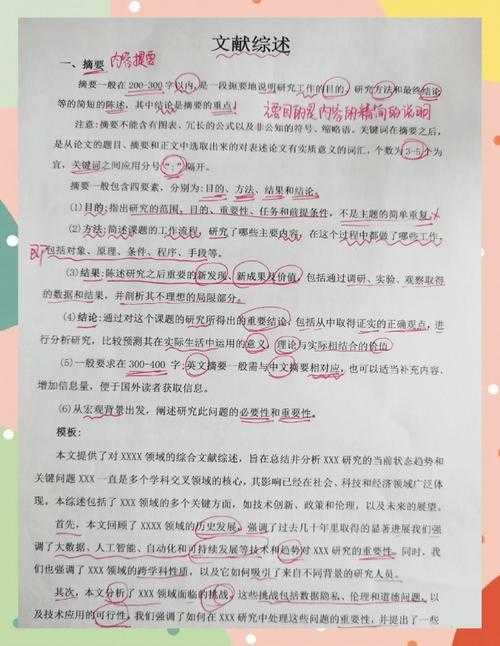 文献综述
一、摘要 内容提要
摘要一般在 200-300 字以内,是一段扼要地说明研究工作的目的、研究方法和最终结论
等的简短的陈述,其中结论是摘要的重点!
注意:摘要不能含有图表、冗长的公式以及非公知的符号、缩略语。关键词在摘要之后,
是从论文的题目、摘要和正文中选取出来的对表述论文有实质意义的词汇,个数为 3-5 个为
宜,关键词之间应用分号“;”隔开。
摘要一般包含四要素,分别为:目的、方法、结果和结论。
(1)目的:指出研究的范围、目的、重要性、任务和前提条件,不是主题的简单重复;
(2)方法:简述课题的工作流程,研究了哪些主要内容,在这个过程中都做了哪些工作,
包括对象、原理、条件、程序、手段等。
(3)结果:陈述研究之后重要的新发现、新成果及价值,包括通过调研、实验、观察取得
的数据和结果,并剖析其不理想的局限部分。
(4)结论:通过对这个课题的研究所得出的重要结论,包括从中取得证实的正确观点,进
行分析研究,比较预测其在实际生活中运用的意义,理论与实际相结合的价值
(5)一般要求在 300-400 字;英文摘要一般需与中文摘要相对应,也可以适当补充内容、
增加信息量,便于国外读者获取信息。
(6)从宏观背景出发,阐述研究此问题的必要性和重要性。
模板:
本文提供了对 XXXX 领域的综合文献综述,旨在总结并分析 XXX 研究的当前状态趋势和
关键问题 XXX 一直是多个学科交叉领域的核心,其影响已经在社会、科技和经济领域广泛体
现。本综述包括了 XXX 领域的多个关键方面,如技术创新、政策和伦理,以及未来的展望。
首先,本文回顾了 XXXX 领域的历史发展,强调了过去几十年里取得的显著进展我们强
调了大数据、人工智能、自动化和可持续发展等技术和趋势对 XXX 研究的重要性。同时,我
们也强调了 XXX 领域的跨学科性质,以及它如何吸引了来自不同背景的研究人员。
其次,本文分析了 XXX 领域面临的挑战,这些挑战包括数据隐私、伦理和道德问题,以
及技术应用的可行性。我们强调了如何在 XXX 研究中处理这些问题的重要性,并提出了一些